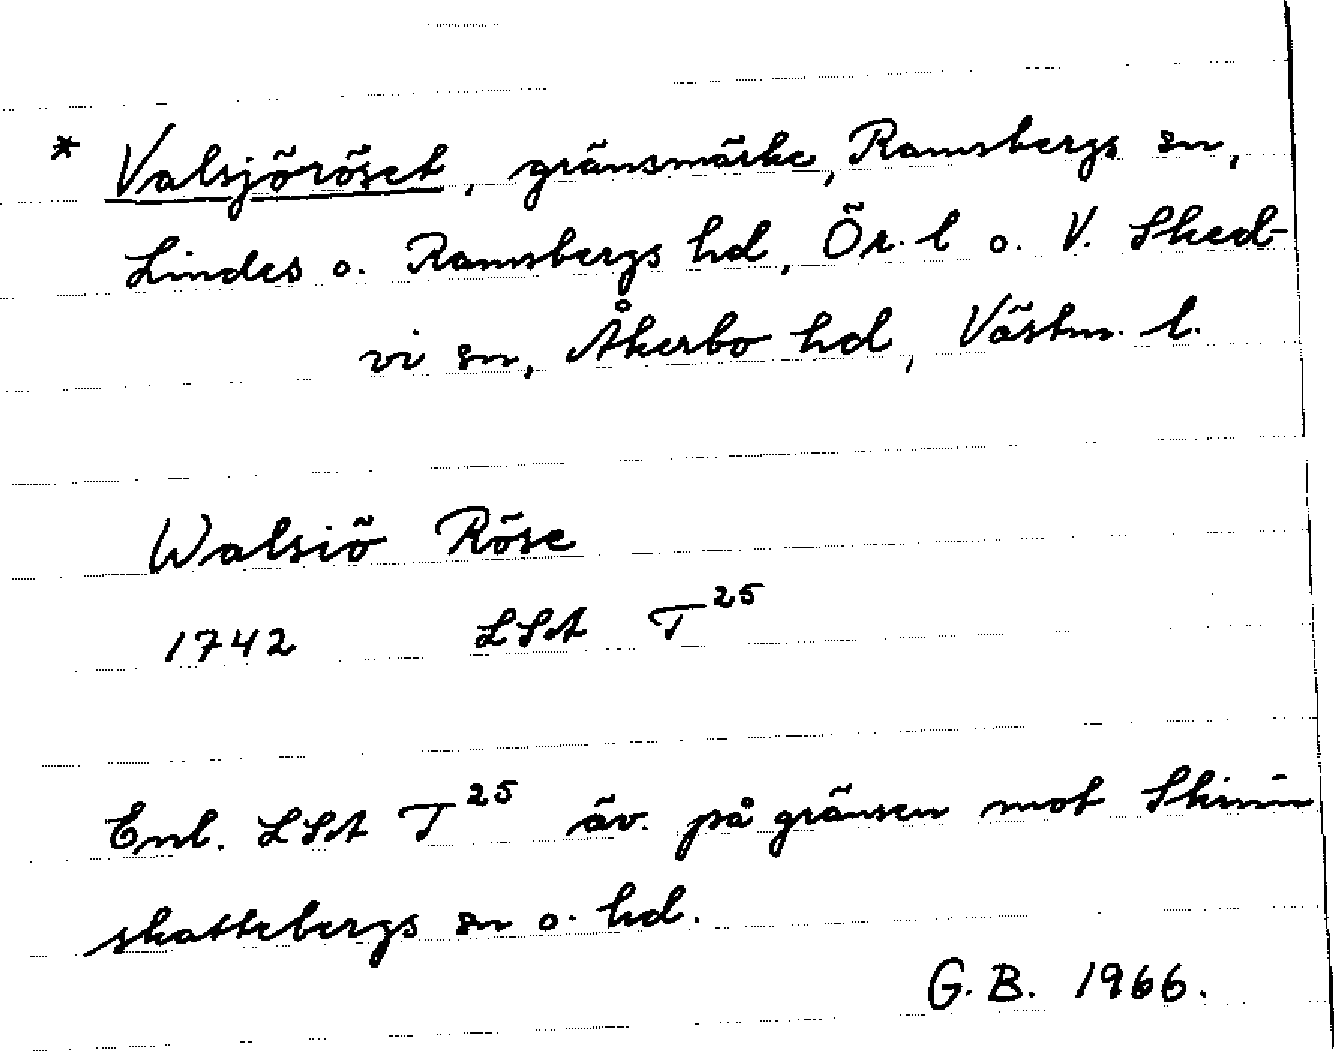 * Valsjöröset, gränsmärke, Ramsbergs sn,
Lindes o. Ramsbergs hd, Ör. l o. V. Sked-
vi sn, Åkerbo hd, Västm. l.
Walsiö Röse
1742 LSA T25
Enl. LSA T25 äv. på gränsen mot Skinn-
skattebergs sn o. hd.
G. B. 1966.